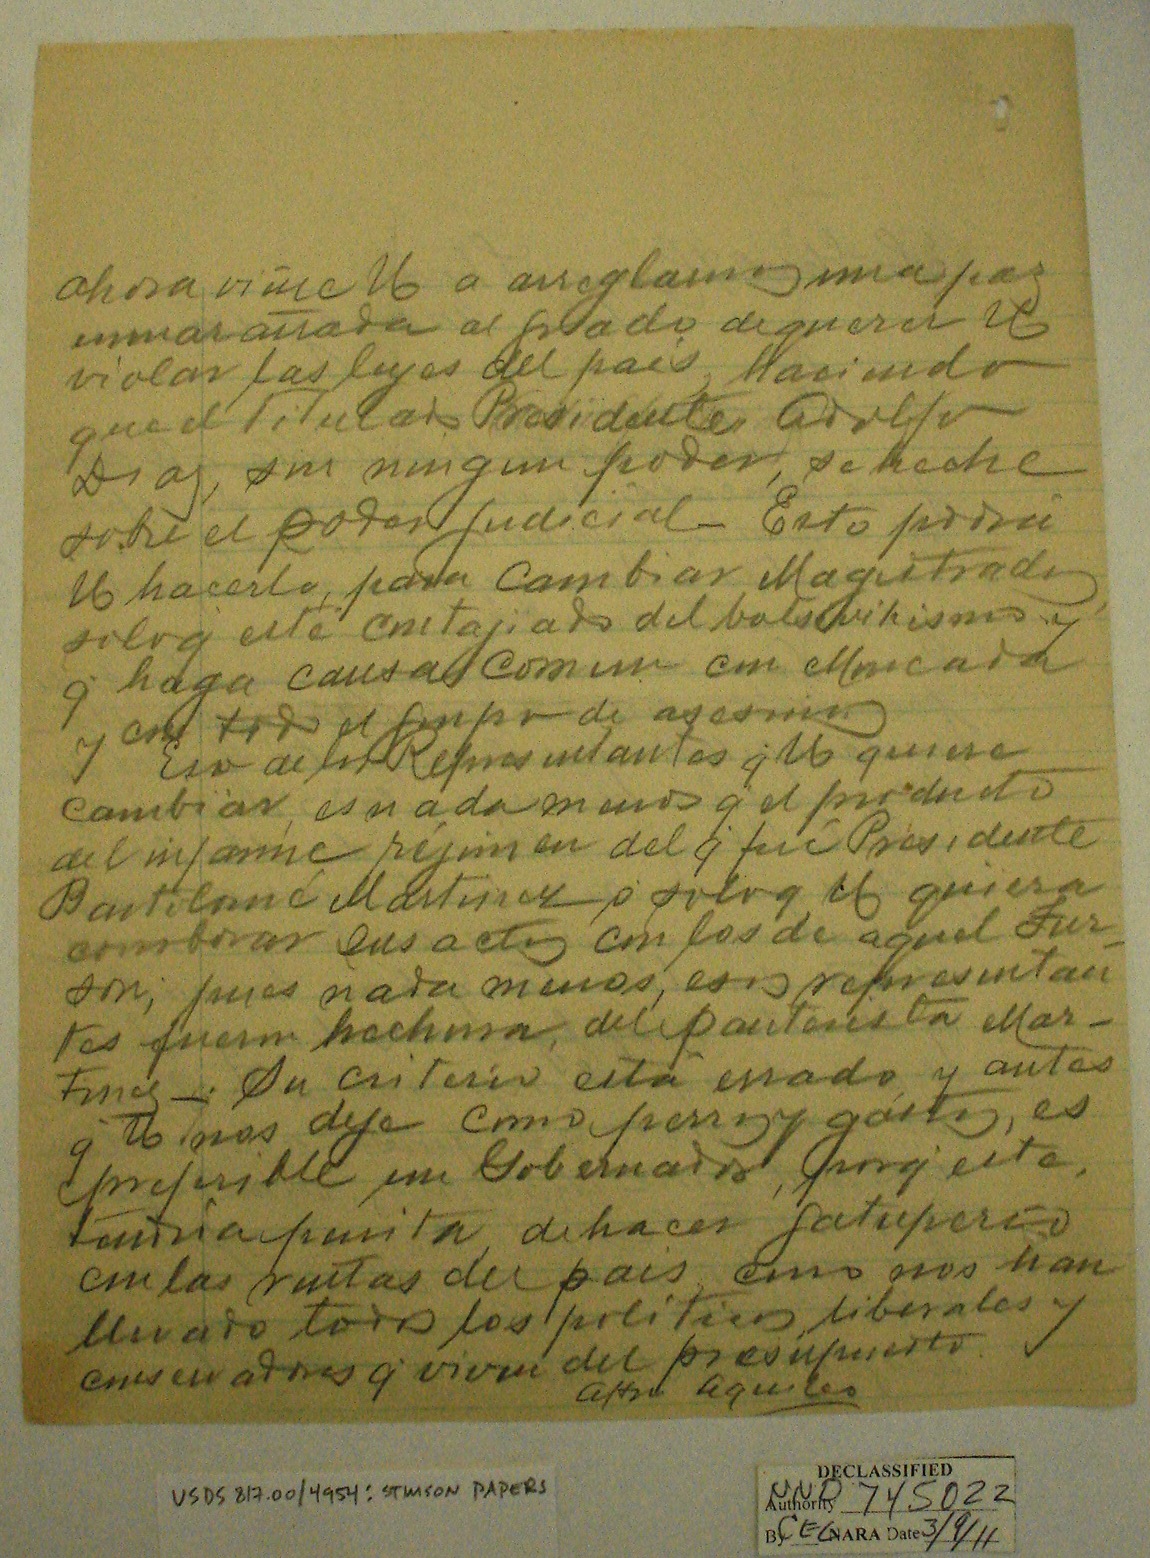 ahora viene U a arreglarnos una paz
enmarañada al grado de querer U
violar las leyes del pais, haciendo
que el titulado Presidente, Adolfo
Diaz, sin ningun poder, se heche
sobre el poder judicial_ Esto podrá
U hacerlo, para cambiar Magistrados,
solo q este contajiado del bolsevikismo y
q haga causa comun con Moncada
y con todo el grupo de asesinos
Eso de los Representantes q U quiere
cambiar, es nada menos q el producto
del infame réjimen del q fué Presidente
Bartolomé Martinez o solo q U quiera
comborar sus actos con los de aquel
son; pues nada menos, esos representan
tes fueron hechura, del panterista Mar-
tinez_. Su criterio está errado y antes
q U nos deje como perros y gatos, es
preferible un Gobernador, porq este,
tendria punta de hacer gatuperio
con las rentas del pais, como nos han
llevado todos los politicos, liberales y
conservadores q viven del presupuesto.
Atto Aquiles
USDS 817.00/4954: STIMSON PAPERS
DECLASSIFIED
Authority NND 745022
By CEC NARA Date 3/9/11